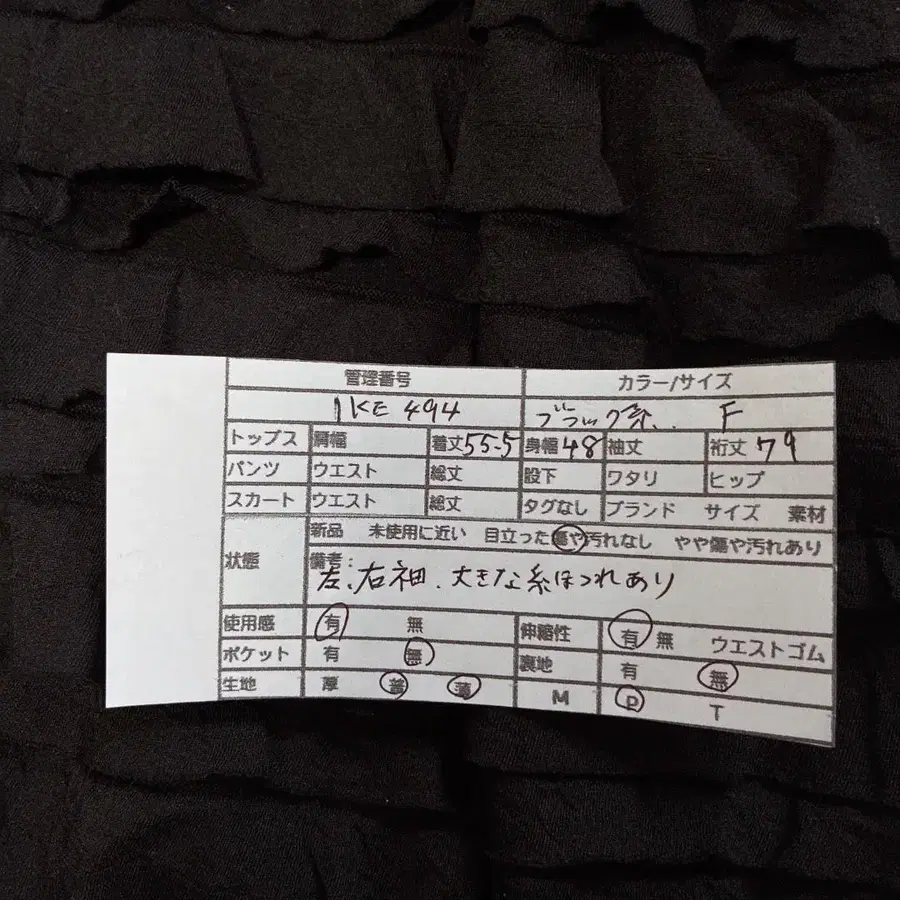 管理番号 カラー/サイズ
IKE 494 ブラック系.. F
トップス 肩幅 着丈 55.5 身幅 48 袖丈 裄丈 79
パンツ ウエスト 総丈 股下 ワタリ ヒップ
スカート ウエスト 総丈 タグなし ブランド サイズ 素材
状態 新品 未使用に近い 目立った傷や汚れなし やや傷や汚れあり
備考:
左、右袖、大きな糸ほつれあり
使用感 有 無 伸縮性 有 無 ウエストゴム
ポケット 有 無 裏地 有 無
生地 厚 普 薄 M P T